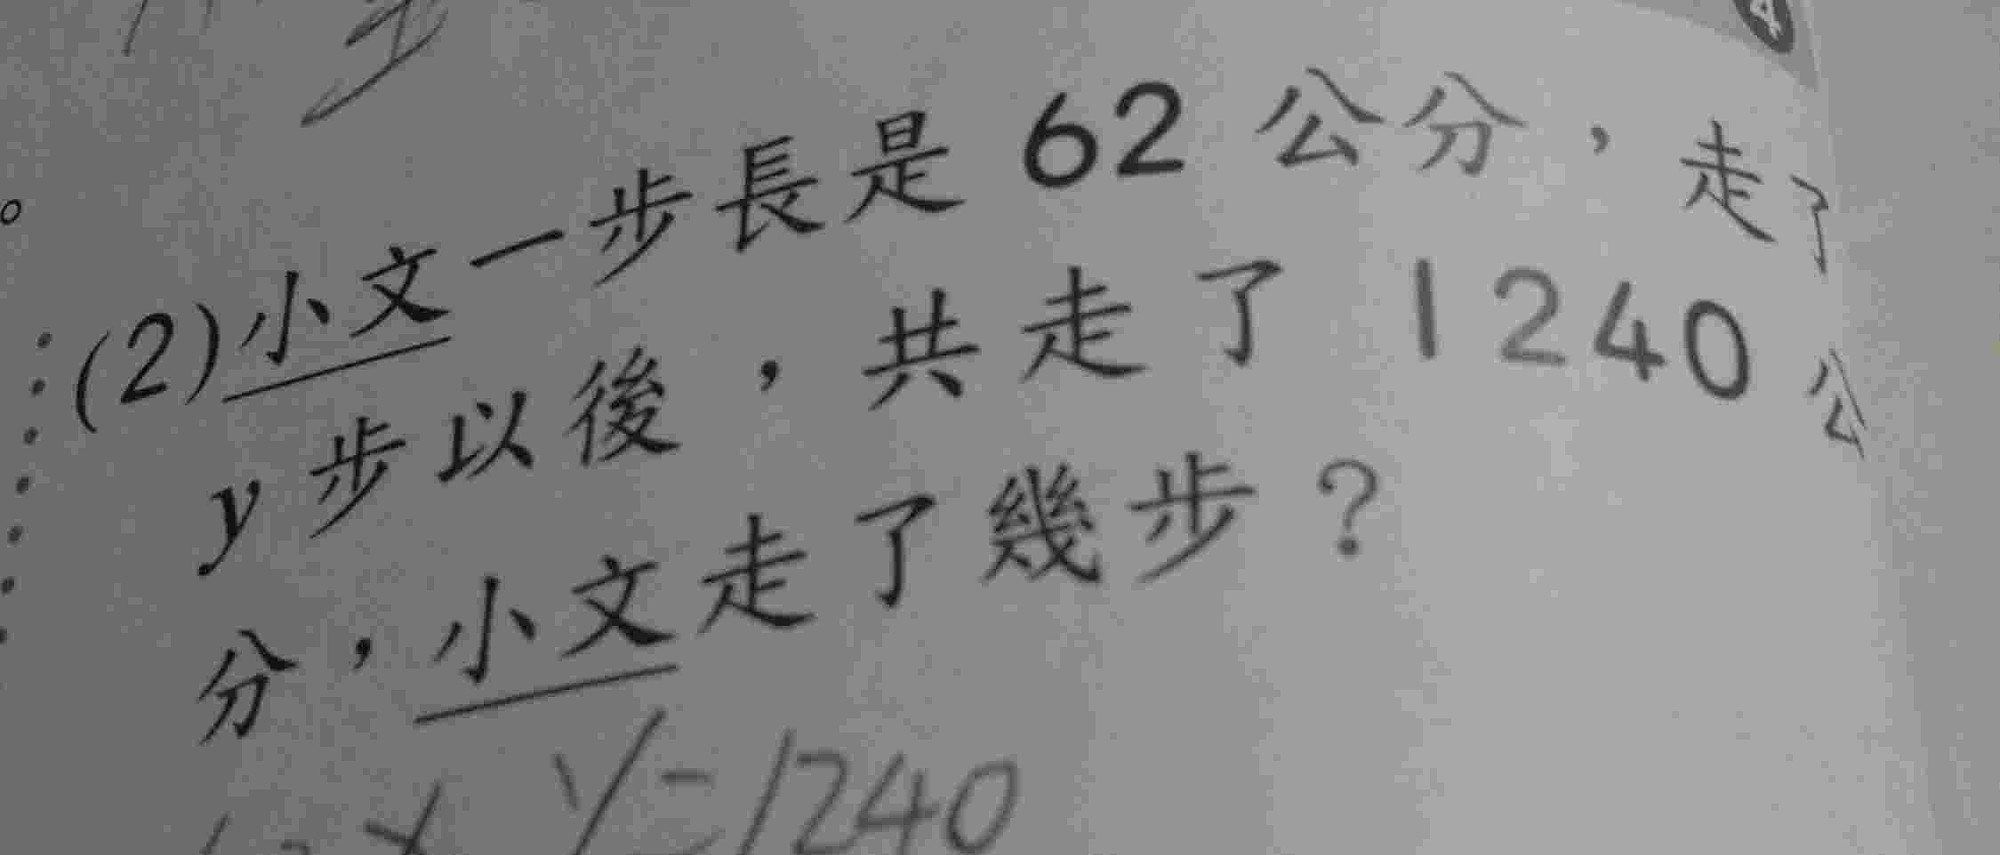 (2)小文一步長是 62 公分，走了
y 步以後，共走了 1240 公
分，小文走了幾步？
y=1240